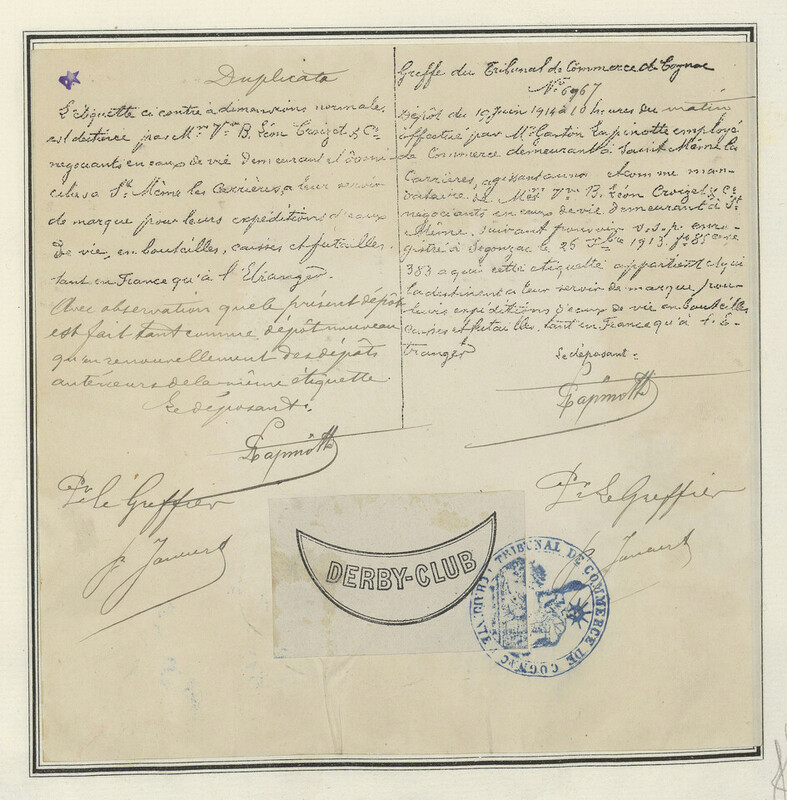 Duplicata
L'étiquette ci contre à dimensions normales
est destinée par Mrs Vve B. Léon Croizet & Cie
négociants en eaux de vie demeurant et domi
ciliés à St Même les Carrières, à leur servir
de marque pour leurs expéditions d'eaux
de vie, en bouteilles, caisses et futailles,
tant en France qu'à l'Etranger
Avec observation que le présent dépôt
est fait tant comme dépôt nouveau
qu'en renouvellement des dépôts
antérieurs de la même étiquette.
Le déposant.
Lapinotte
Pr Le Greffier
Greffe du Tribunal de Commerce de Cognac
No 6967
Dépôt du 10 Juin 1914 à 10 heures du matin
effectué par Mr Gaston Lapinotte employé
de Commerce demeurant à Saint Même les
Carrières, agissant au nom et comme man
dataire de Mrs Vve B. Léon Croizet & Cie
négociants en eaux de vie, demeurant à St
Même, suivant pouvoir s.s.p. enre
gistré à Segonzac le 26 1913. fo 85 case
383 à qui cette étiquette appartient et qui
la destinent à leur servir de marque pour
leurs expéditions d'eaux de vie en bouteilles
caisses et futailles, tant en France qu'à l'E
tranger
Le déposant.
Lapinotte
Pr Le Greffier
DERBY-CLUB
TRIBUNAL DE COMMERCE DE COGNAC (CHARENTE)